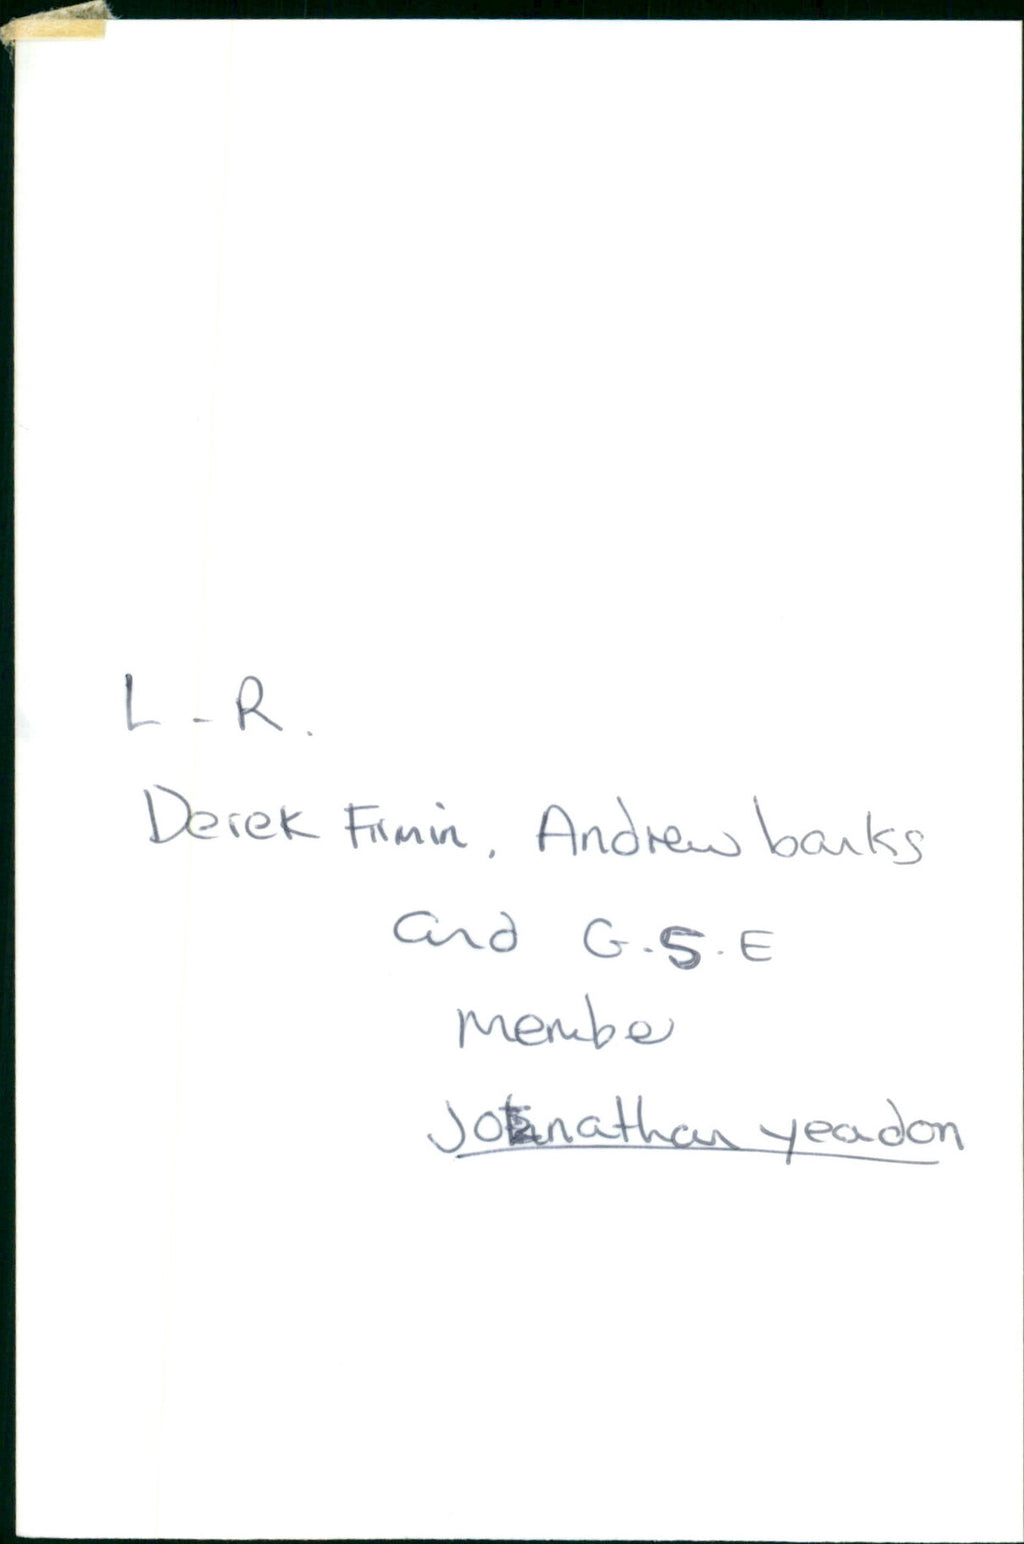 L - R.
Derek Firmin, Andrew banks
and G.S.E
Member
Johnathan yeadon